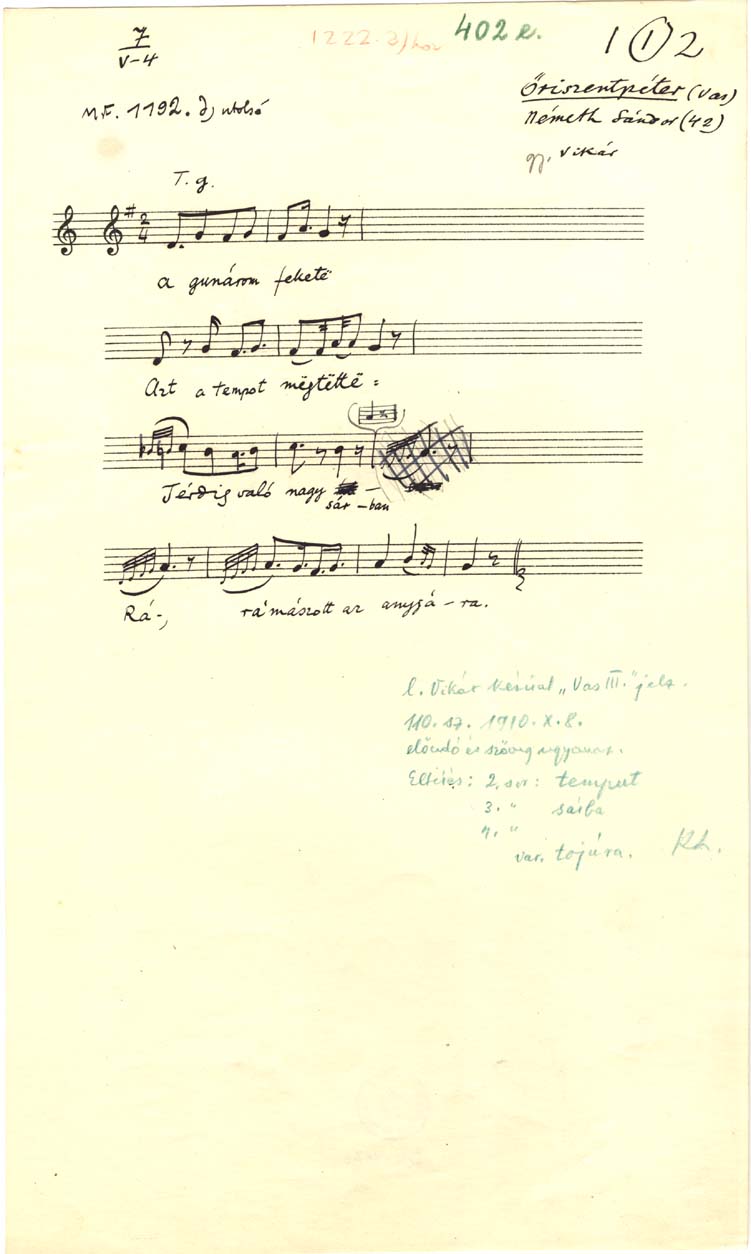 7
V-4
1222.
402 e.
1 1 2
Őriszentpéter (Vas)
Németh Sándor (42)
gy. Vikár
M.F. 1192. d) utolsó
T. g.
2
4
a gunárom feketë
Azt a tempot mëgtëttë :
Térdig való nagy
sár - ban
Rá -, rá mászott az anygyá - ra.
l. Vikár kézirat „Vas III." jelz.
110. sz. 1910. X. 8.
előadó és szöveg ugyanaz.
Eltérés : 2. sor : temput
3. " sárba
4. "
var. tojúra.